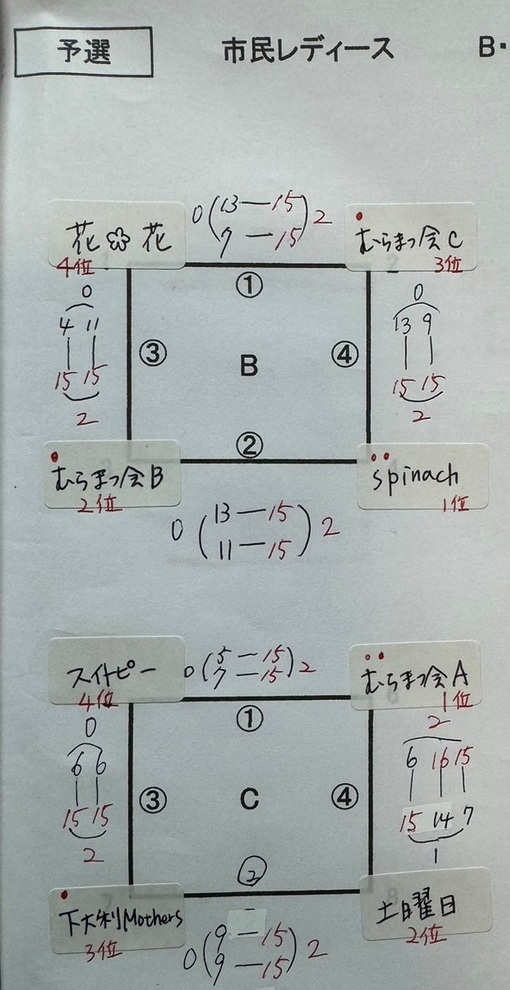 予選 市民レディース B・
0(13—15)2
7—15
花✿花
4位
むらまつ会C
3位
①
0
4 11
15 15
2
③ B ④
0
13 9
15 15
2
②
むらまつ会B
2位
spinach
1位
0(13—15)2
11—15
0(5—15)2
7—15
スイトピー
4位
むらまつ会A
1位
①
0
6 6
15 15
2
③ C ④
2
6 16 15
15 14 7
1
②
下大利Mothers
3位
土曜日
2位
0(9—15)2
9—15